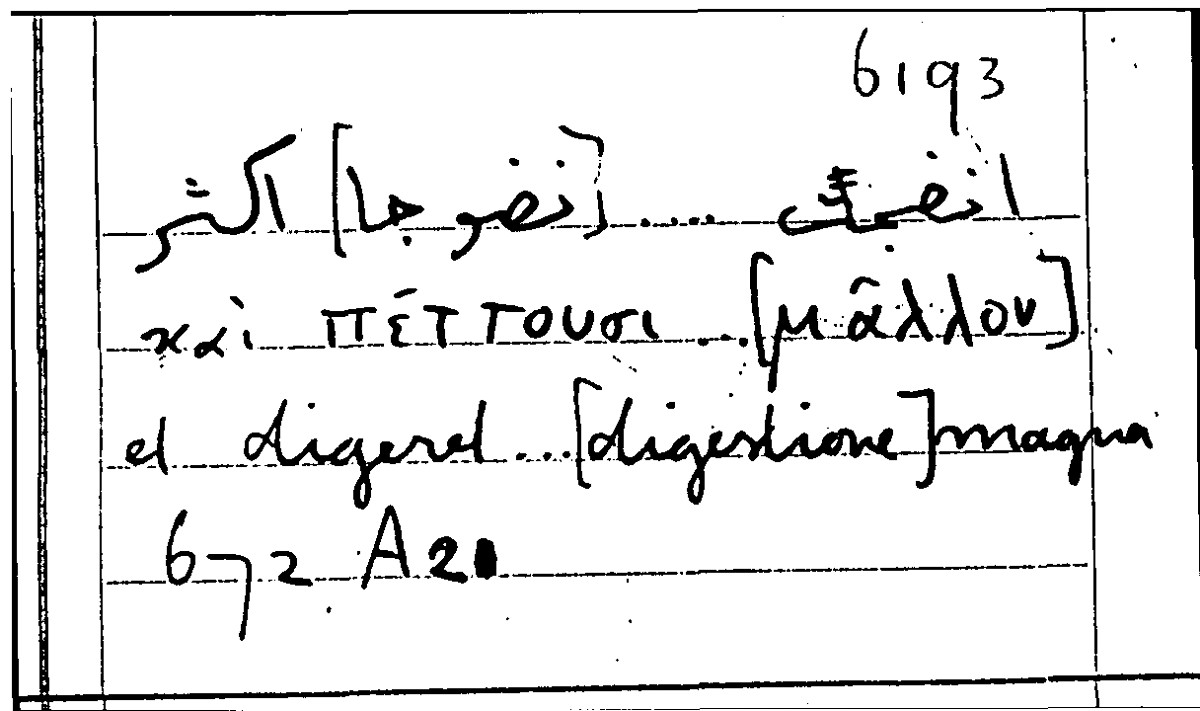 6193
انضجت .... [نضوجا] اكثر
καὶ πέττουσι ... [μᾶλλον]
et digeret ... [digestione] magna
672 A 20